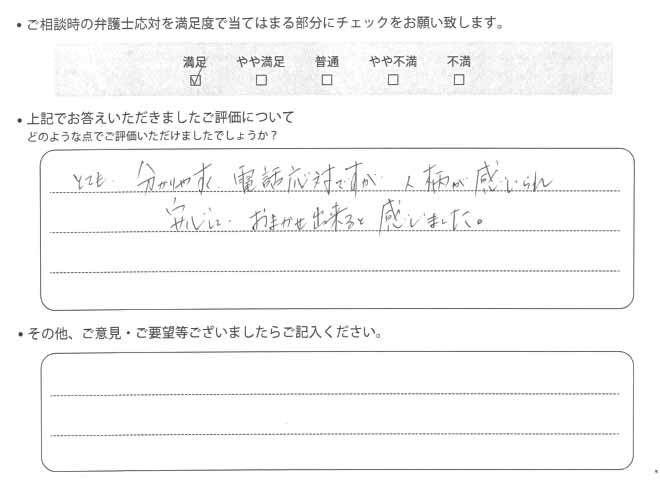 • ご相談時の弁護士応対を満足度で当てはまる部分にチェックをお願い致します。
満足 やや満足 普通 やや不満 不満
☑ □ □ □ □
• 上記でお答えいただきましたご評価について
どのような点でご評価いただけましたでしょうか？
とても 分かりやすく 電話応対ですが 人柄が感じられ
安心して おまかせ出来ると 感じました。
• その他、ご意見・ご要望等ございましたらご記入ください。